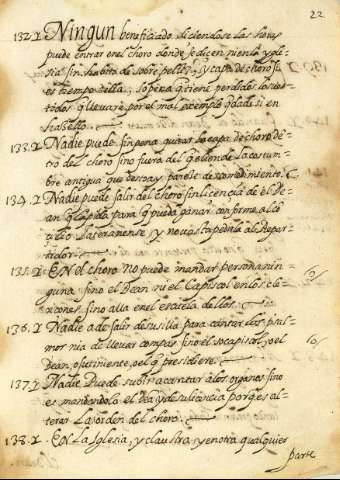 22
132. Ningun beneficiado diciendose las horas
puede entrar en el choro donde se dicen ni en la ygle
sia sin habito de sobre pelliz, y capa de choro si
es tiempo della; so pena q tiene perdidos los ves
tidos q llevare por el mal exemplo q da di en
hacello.
133. Nadie puede sin pena quitar la capa de choro de
tro del choro sino fuera del que en de la costum
bre antigua que desnay parece descomedimiento.
134. Nadie puede salir del choro sin licencia de el De
an q la pida para q pueda ganar conforme al co
cilio Lateranense, y no va sta pedirla al Repar
tidor.
135. En el choro no puede mandar persona nin
guna sino el Dean ni el Capiscol en los le
xiones sino alla en el escuela dellos.
136. Nadie a de salir de su silla para cantar los psal
mos ni a de llevar compas sino el socapiscol, o el
Dean, o su teniente, o el q presidiere.
137. Nadie Puede subir a cantar a los organos sino
es mandandolo el Dea y de su licencia porq es al
terar la orden del choro.
138. En la Iglesia, y claustra, y en otra qualquier
parte